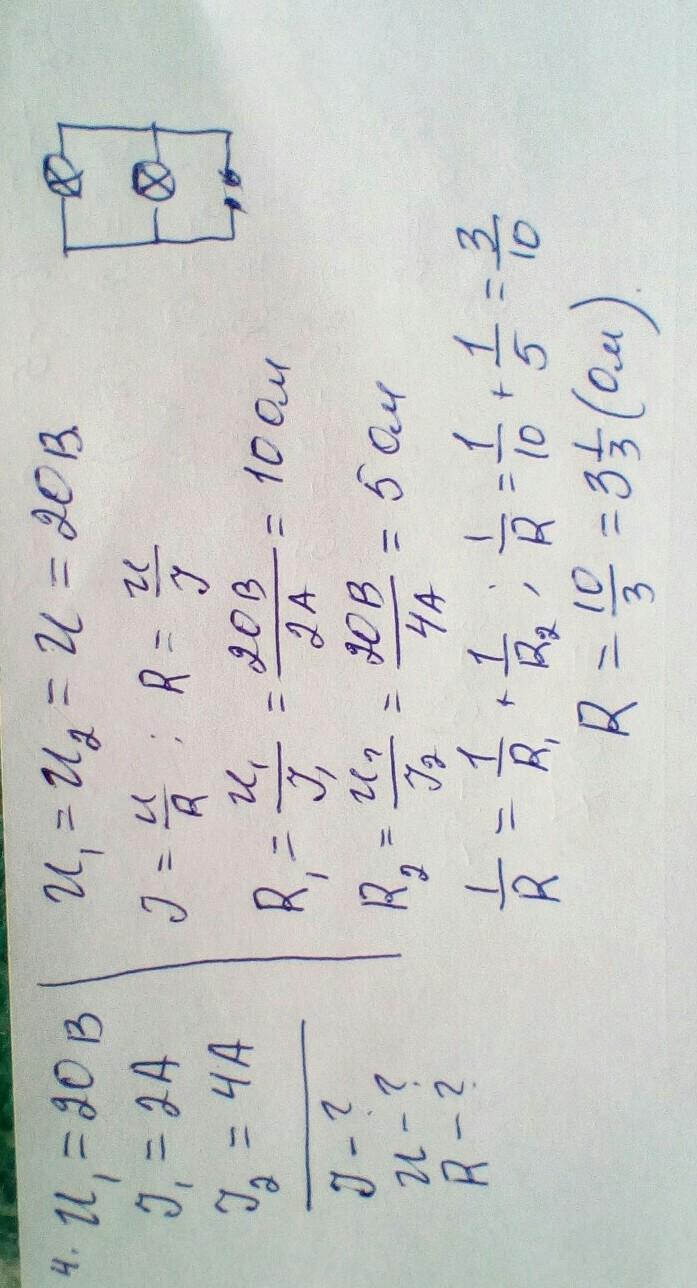 4. U₁ = 20 В
J₁ = 2А
J₂ = 4А
J - ?
U - ?
R - ?
U₁ = U₂ = U = 20 В.
J = U/R ; R = U/J
R₁ = U₁/J₁ = 20 В/2А = 10 Ом
R₂ = U₂/J₂ = 20 В/4А = 5 Ом
1/R = 1/R₁ + 1/R₂ ; 1/R = 1/10 + 1/5 = 3/10
R = 10/3 = 3 1/3 (Ом).